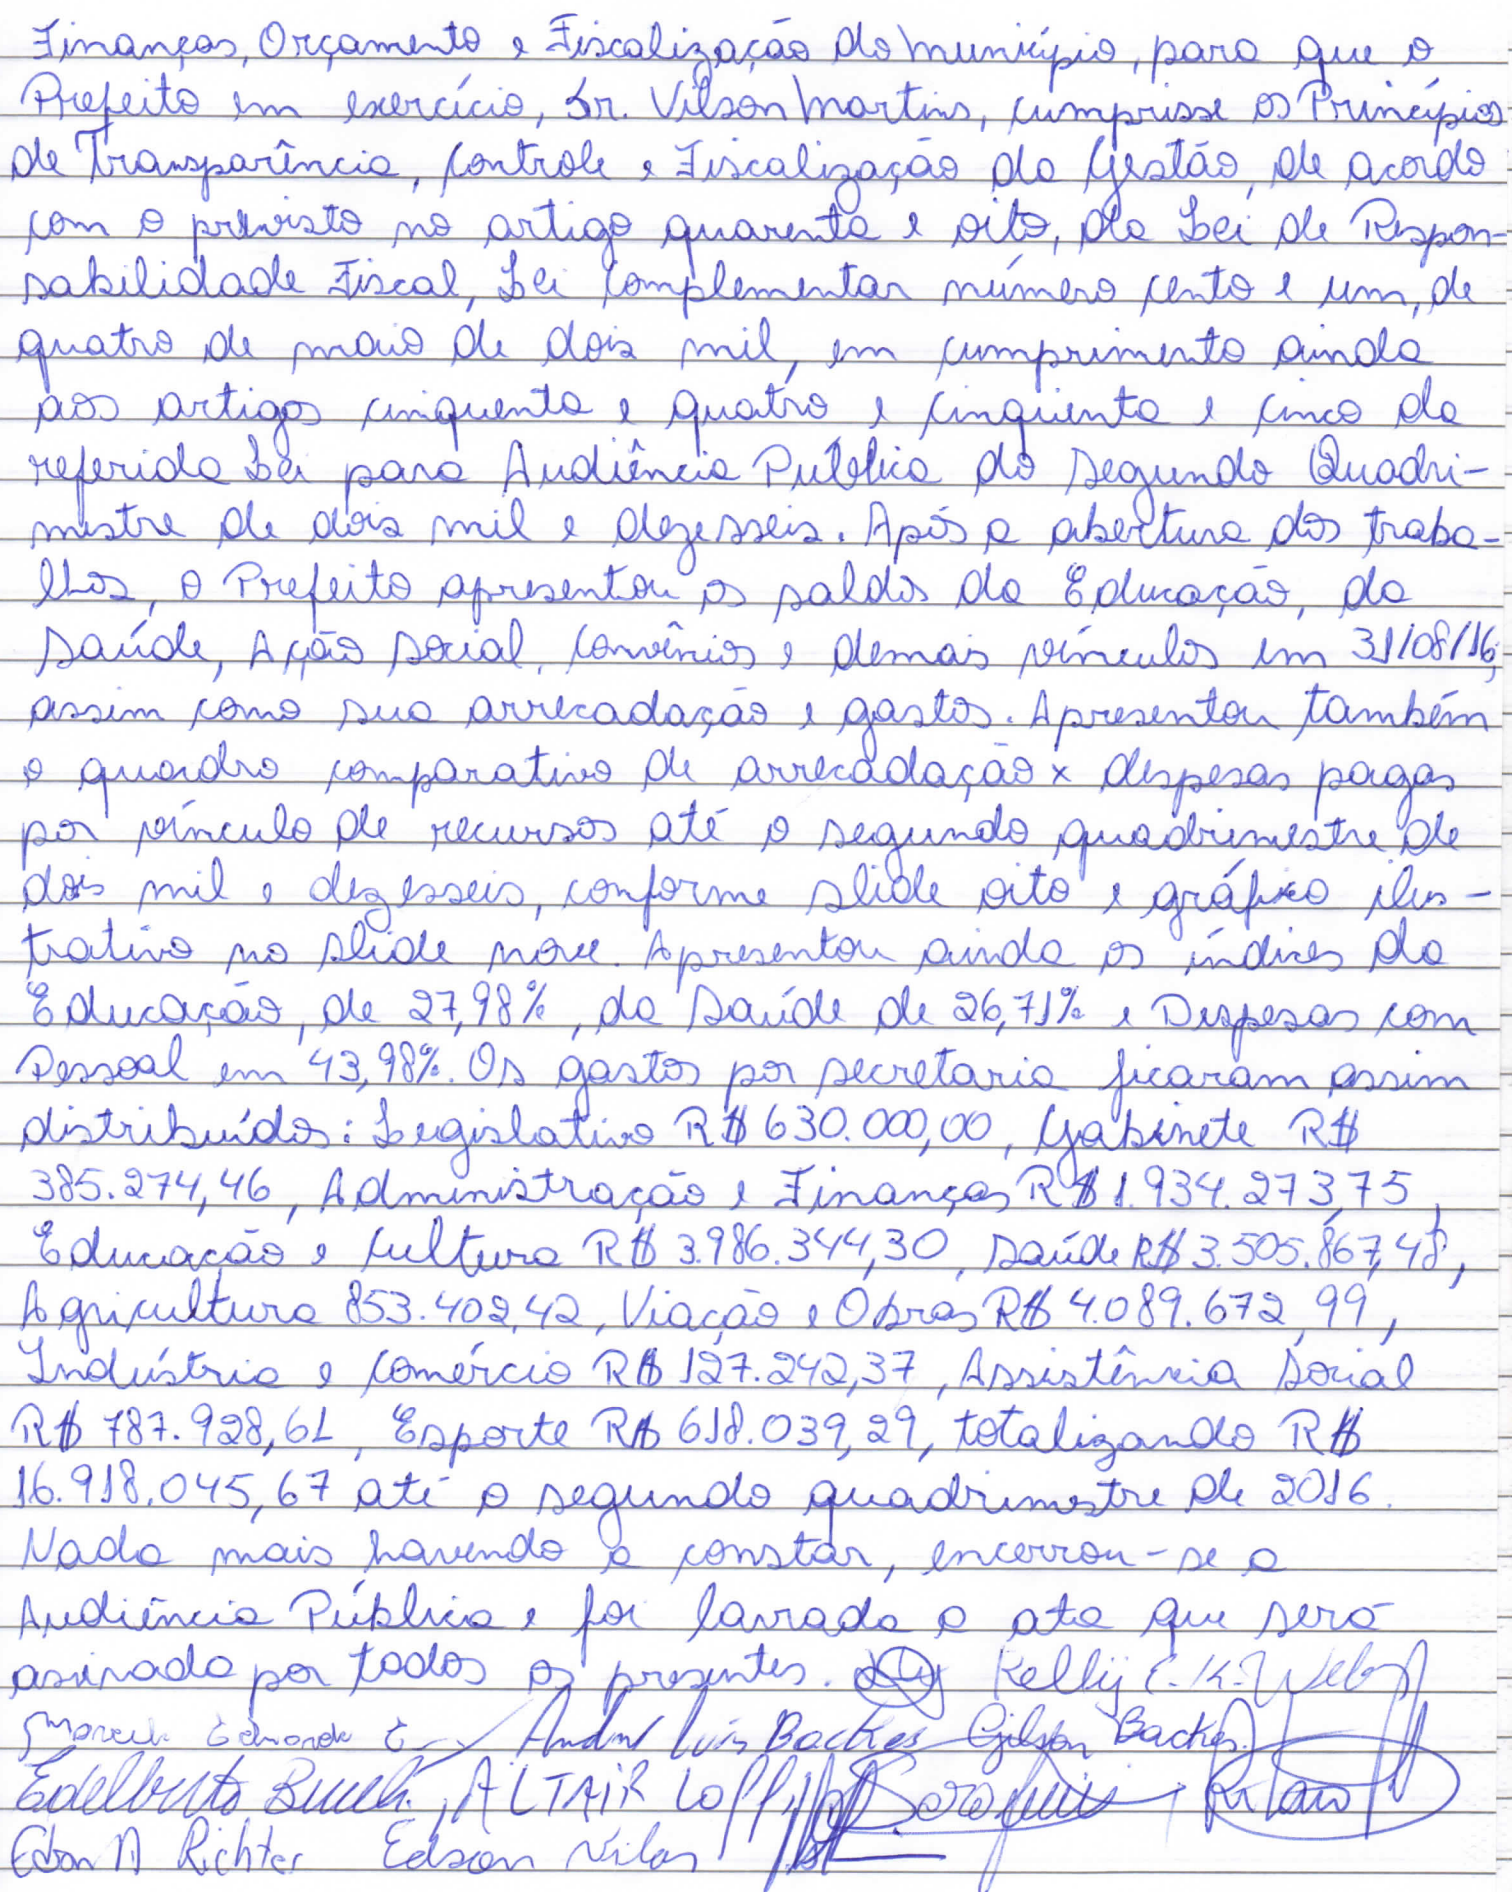 Finanças, Orçamento e Fiscalização do Município, para que o
Prefeito em exercício, Sr. Vilson Martins, cumprisse os Princípios
de Transparência, Controle e Fiscalização da Gestão, de acordo
com o previsto no artigo quarenta e oito, da Lei de Respon-
sabilidade Fiscal, Lei Complementar número cento e um, de
quatro de maio de dois mil, em cumprimento ainda
aos artigos cinquenta e quatro e cinquenta e cinco da
referida Lei para Audiência Pública do segundo Quadri-
mestre de dois mil e dezesseis. Após a abertura dos traba-
lhos, o Prefeito apresentou os saldos da Educação, da
Saúde, Ação Social, Convênios e demais vínculos em 31/08/16,
assim como sua arrecadação e gastos. Apresentou também
o quadro comparativo de arrecadação x despesas pagas
por vínculo de recursos até o segundo quadrimestre de
dois mil e dezesseis, conforme slide oito e gráfico ilus-
trativo no slide nove. Apresentou ainda os índices da
Educação, de 27,98%, da Saúde de 26,71% e Despesas com
Pessoal em 43,98%. Os gastos por secretaria ficaram assim
distribuídos: Legislativo R$ 630.000,00, Gabinete R$
385.274,46, Administração e Finanças R$ 1.934.273,75,
Educação e Cultura R$ 3.986.344,30, Saúde R$ 3.505.867,48,
Agricultura 853.402,42, Viação e Obras R$ 4.089.672,99,
Indústria e Comércio R$ 127.242,37, Assistência Social
R$ 787.928,61, Esporte R$ 618.039,29, totalizando R$
16.918.045,67 até o segundo quadrimestre de 2016.
Nada mais havendo a constar, encerrou-se a
Audiência Pública e foi lavrada a ata que será
assinada por todos os presentes. Kelly C. K. Weber
Eduardo André Luis Backes Gilson Backes
Edelberto ALTAIR
Edson A Richter Edson Vilas